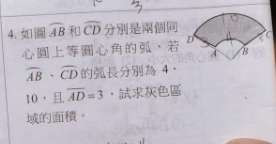 3
4. 如圖 AB 和 CD 分別是兩個同
心圓上等圓心角的弧、若
AB、CD 的弧長分別為 4、
10，且 AD=3，試求灰色區
域的面積。
D
C
A
B